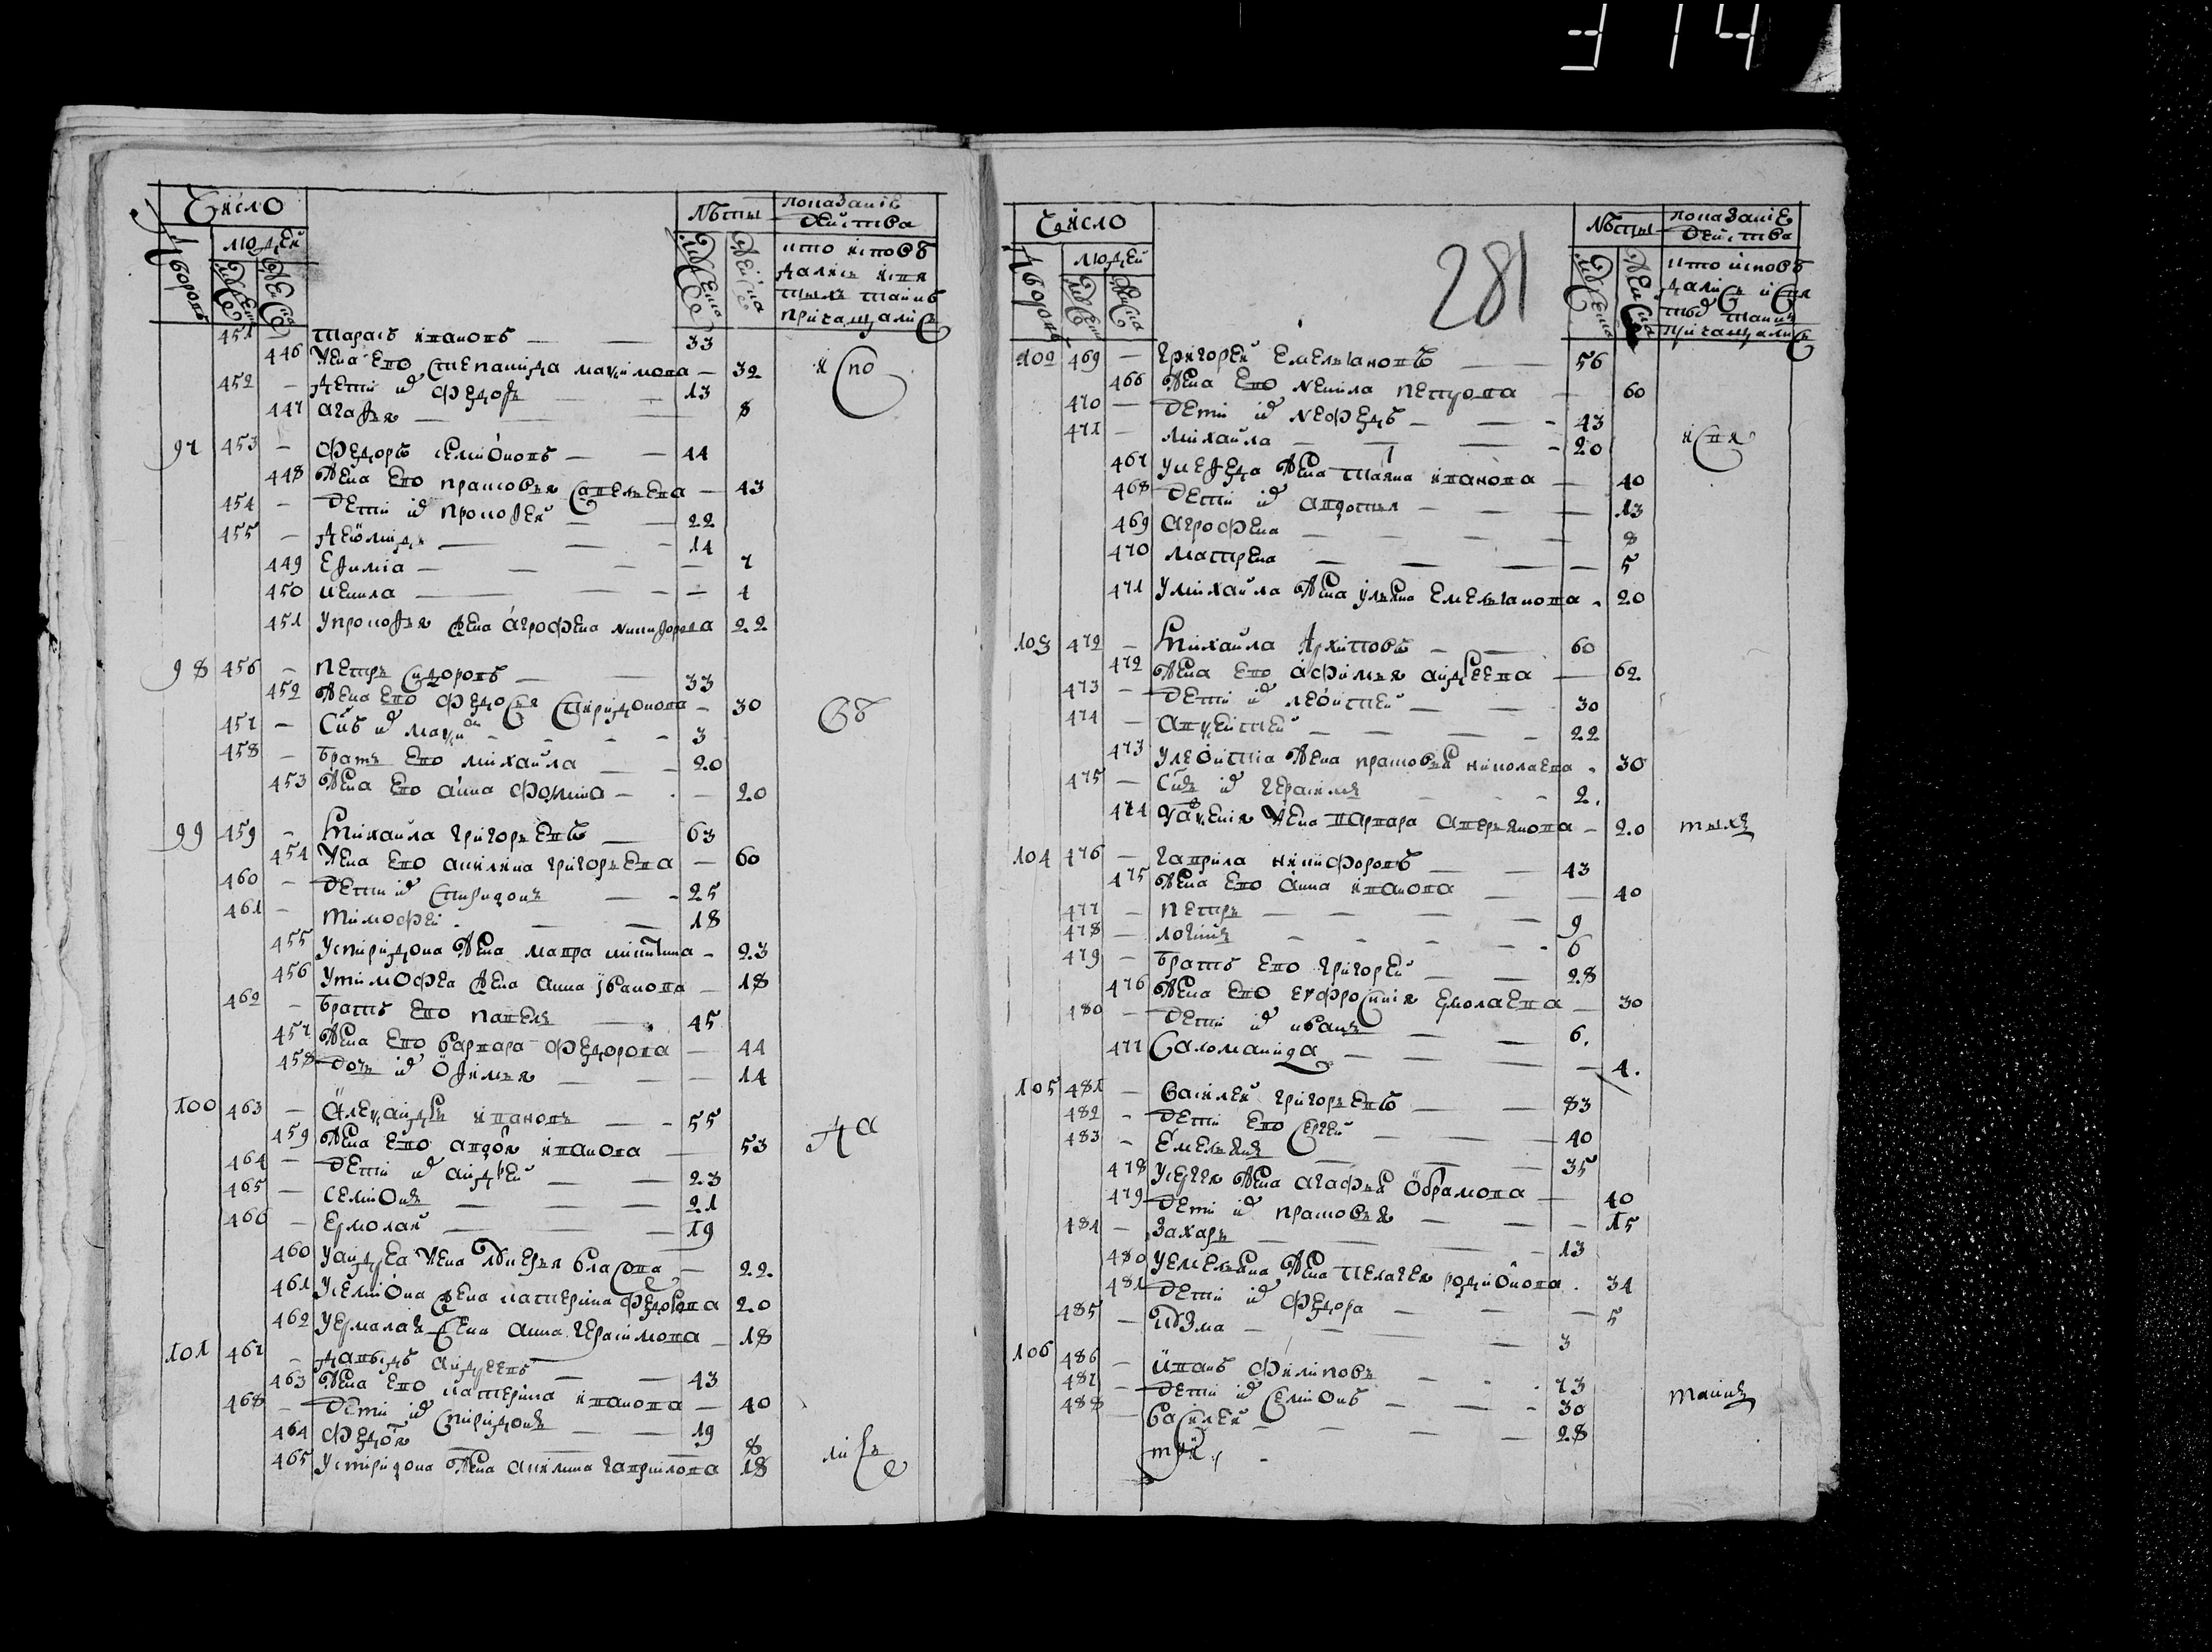 314
Число
Дворовъ
людей
мужеска
женска
Лѣты
мужеска
женска
показаніе
действа
кто исповѣ
дались и свя
тыхъ таинъ
причащались
451 — Тарасъ Ивановъ — — 33
446 Жена ево Степанида Макимова — 32
испо
452 — Дети их Федоръ — — 13
447 Агафья — — 8
97 453 — Федоръ Семионовъ — — 44
448 Жена ево Прасковья Савельева — 43
454 — Дети их Прокофей — — 22
455 — Деомидъ — — 14
449 Ефимiа — — — — 7
450 Некила — — — — 4
451 У Прокофья жена Агрофена Никифорова 22
98 456 — Петръ Сидоровъ — — 33
452 Жена ево Федосья Спиридонова — 30
вѣ
457 — Сынъ их Макси — — — 3
458 — Братъ ево Михайла — — 20
453 Жена ево Анна Фомина — — 20
99 459 — Михайла Григорьевъ — 63
454 Жена ево Акилина Григорьева — 60
460 — Дети их Спиридонъ — — 25
461 — Тимофей — — 18
455 У Спиридона жена Мавра Никитина — 23
456 У Тимофеа жена Анна Иванова — 18
462 — Братъ ево Павелъ — 45
457 Жена ево Варвара Федорова — 44
458 Дочь их Офимья — — 14
100 463 — Александръ Ивановъ — — 55
459 Жена ево Авдотя Иванова — 53
да
464 — Дети их Андрей — — 23
465 — Семионъ — — 21
466 — Ермолай — — 19
460 У Андреа жена Лукерья Власова — 22
461 У Семиона жена Катерина Федорова 20
462 У Ермалая жена Анна Герасимова — 18
101 467 — Давыдъ Андреевъ — — 43
463 Жена ево Катерина Иванова — 40
468 — Дети их Спиридонъ — — 19
464 Федося — — 8
465 У Спиридона жена Акилина Гаврилова 18
лись
Число
Дворовъ
людей
мужеска
женска
281
Лѣты
мужеска
женска
показаніе
действа
кто исповѣ
дались и свя
тых таинъ
причащались
102 469 — Григорей Емельиановъ — — 56
466 Жена ево Некила Петрова — 60
470 — Дети их Нефедъ — — 43
471 — Михайла — — 20
и свя
467 У Нефеда жена Таяна Иванова — 40
468 Дети их Авдотья — — 13
469 Агрофена — — — 8
470 Матрена — — — 5
471 У Михайла жена Ульяна Емельианова 20
103 472 — Михайла Архиповъ — — 60
472 Жена ево Афимья Андреева — 62
473 — Дети их Леонтей — — 30
474 — Авксентей — — 22
473 У Леонтиа жена Прасковья Николаева 30
475 — Сынъ их Герасимъ — — 2
474 У Авксения жена Варвара Аверьянова — 20
тыхъ
104 476 — Гаврила Никифоровъ — — 43
475 Жена ево Анна Иванова — — 40
477 — Петръ — — — 9
478 — Логинъ — — — 6
479 — Братъ ево Григорей — — 28
476 Жена ево Ефросиния Ермолаева — 30
480 — Дети их Иванъ — — 6.
477 Саломанида — — — 4.
105 481 — Василей Григорьевъ — — 83
482 — Дети ево Сергей — — 40
483 — Емельянъ — — 35
478 У Сергея жена Агафья Обрамова — 40
479 Дети их Прасковья — — 15
484 — Захаръ — — 13
480 У Емельяна жена Пелагея Родионова 34
481 Дети их Федора — — 5
485 — Кузма — — 3
106 486 — Иванъ Филиповъ — — 73
487 — Дети их Семионъ — — 30
таинъ
488 — Василей — — 28